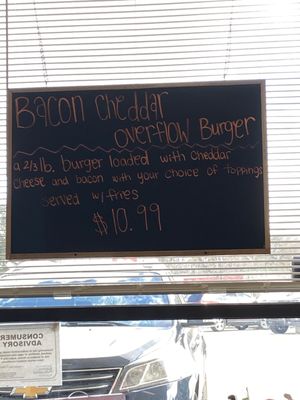 Bacon Cheddar
overflow Burger
a 2/3 lb. burger loaded with cheddar
cheese and bacon with your choice of toppings
served w/ fries
$10.99
CONSUMER
ADVISORY